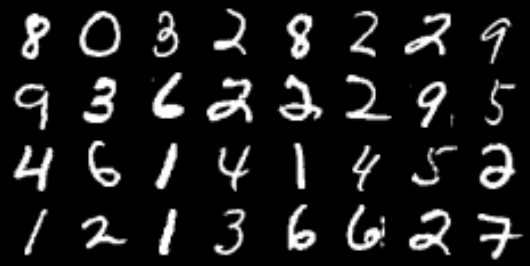 8 0 3 2 8 2 2 9
9 3 6 2 2 2 9 5
4 6 1 4 1 4 5 2
1 2 1 3 6 6 2 7